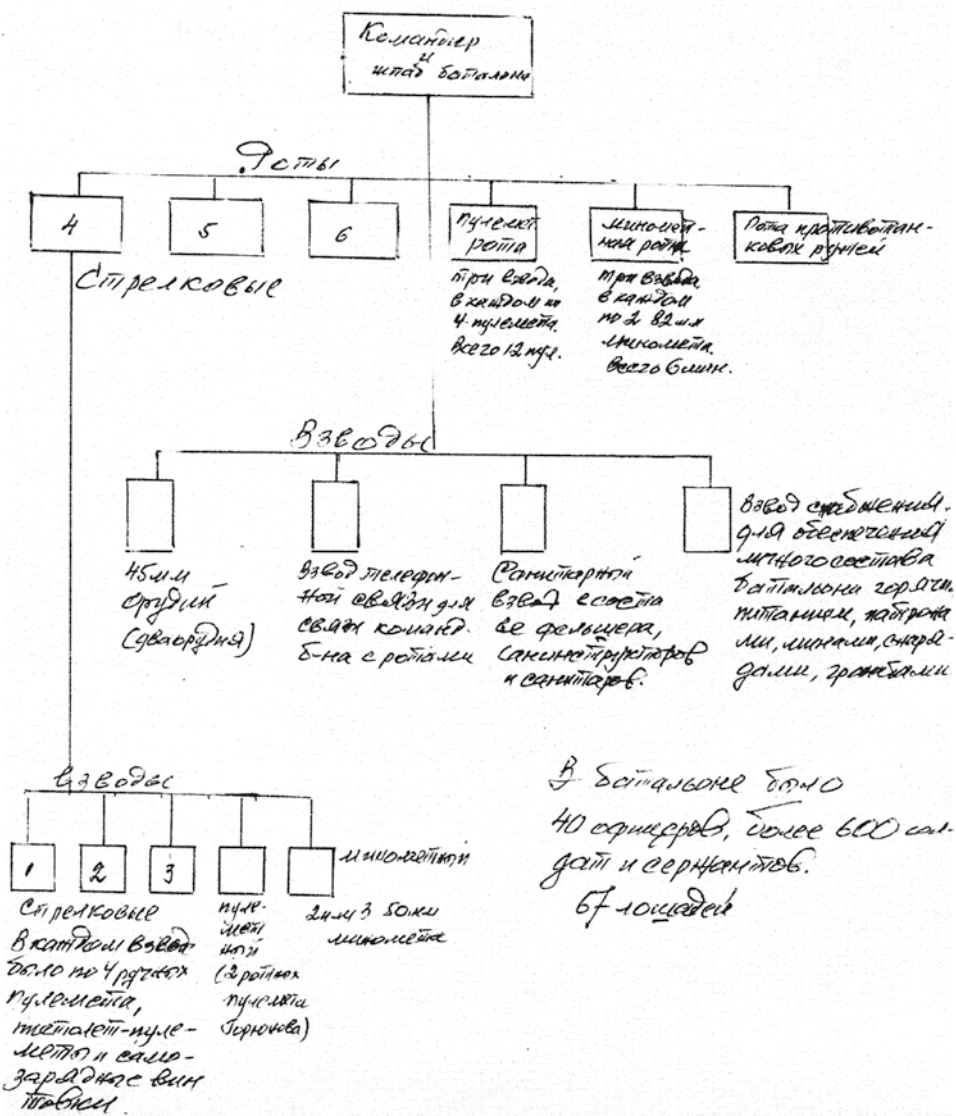 Командир
и
штаб батальона
Роты
4
5
6
пулемет.
рота
миномет-
ная рота
Рота противотан-
ковых ружей
Стрелковые
три взвода,
в каждом по
4 пулемета.
Всего 12 пул.
три взвода
в каждом
по 2 82 мм
миномета.
всего 6 мин.
Взводы
45мм
орудий
(два орудия)
Взвод телефон-
ной связи для
связи команд.
б-на с ротами
Санитарный
взвод в соста
ве фельшера,
санинструкторов
и санитаров.
Взвод снабжения.
для обеспечения
личного состава
батальона горячим
питанием, патрона
ми, минами, снаря-
дами, гранатами
взводы
1
2
3
минометный
Стрелковые
В каждом взводе
было по 4 ручных
пулемета,
пистолет-пуле-
меты и само-
зарядные вин
товки.
пуле-
мет
ный
(2 ротных
пулемета
Горюнова)
2 или 3 50мм
миномета
В батальоне было
40 офицеров, более 600 сол-
дат и сержантов.
67 лошадей